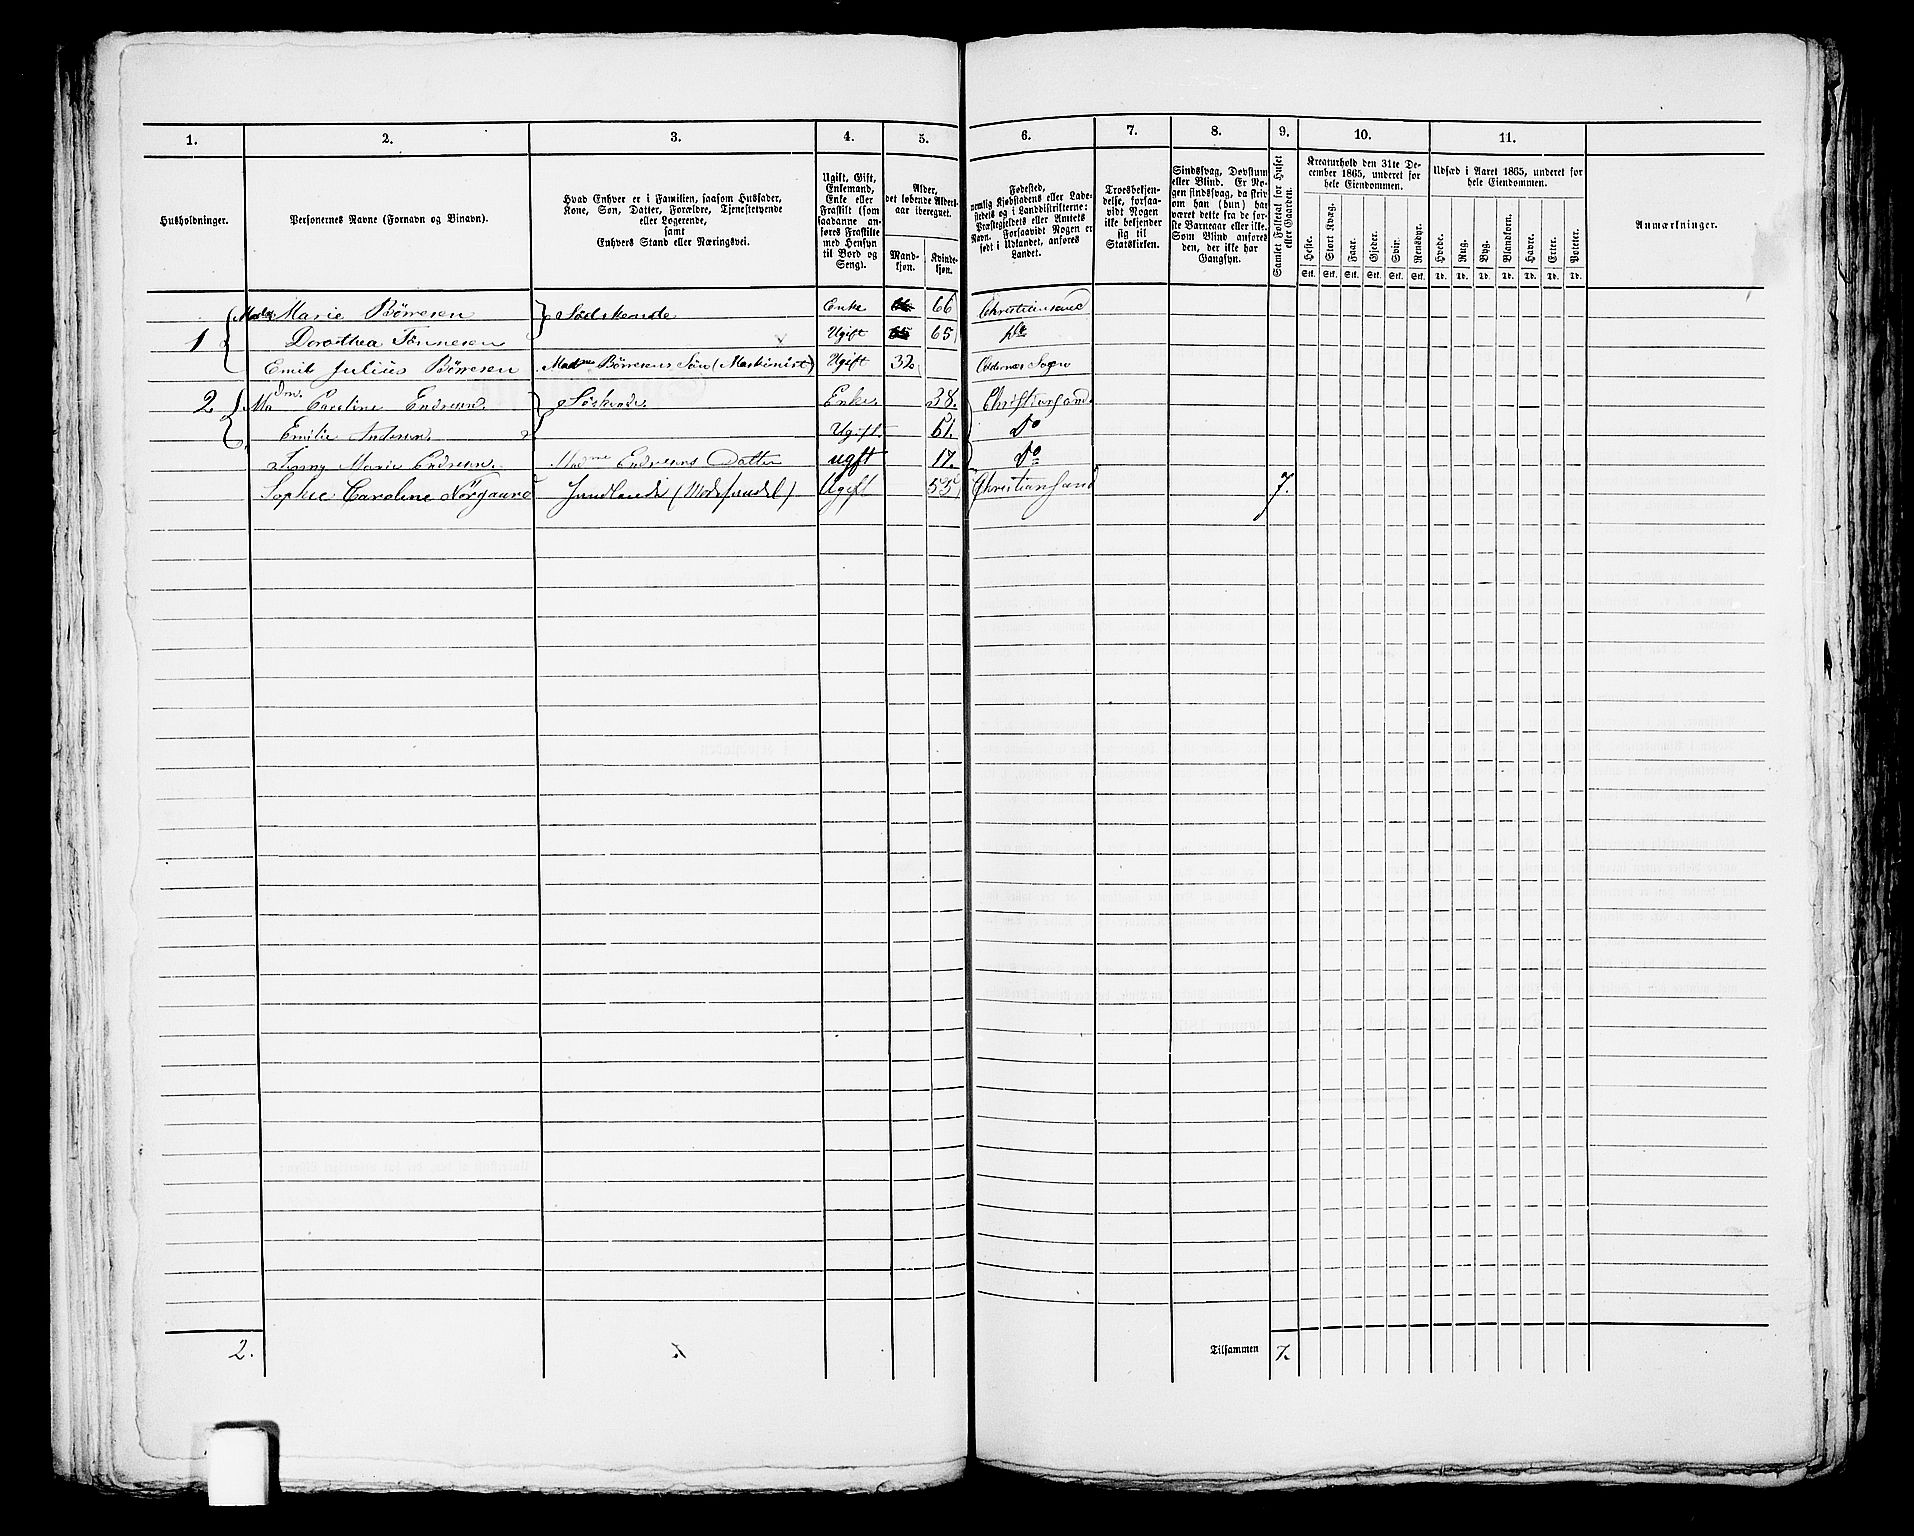 1. 2. 3. 4. 5. 6. 7. 8. 9. 10. 11.
Husholdninger.
Personernes Navne (Fornavn og Binavn).
Hvad Enhver er i Familien, saasom Husfader,
Kone, Søn, Datter, Forældre, Tjenestetyende
eller Logerende,
samt
Enhvers Stand eller Næringsvei.
Ugift, Gift,
Enkemand,
Enke eller
Fraskilt (som
saadanne an-
føres Fraskilte
med Hensyn
til Bord og
Seng).
Alder,
det løbende Alders-
aar iberegnet.
Mand-
kjøn.
Kvinde-
kjøn.
Fødested,
nemlig Kjøbstadens eller Lade-
stedets og i Landdistrikterne:
Præstegjeldets eller Amtets
Navn. Forsaavidt Nogen er
født i Udlandet, anføres
Landet.
Troesbekjen-
delse, forsaa-
vidt Nogen
ikke bekjender
sig til
Statskirken.
Sindssvag, Døvstum
eller Blind. Er No-
gen sindssvag, da skriv
om han (hun) har
været dette fra de før-
ste Barneaar eller ikke.
Som Blind anføres
den, der ikke har
Gangsyn.
Samlet Folketal for Huset
eller Gaarden.
Kreaturhold den 31te De-
cember 1865, underet for
hele Eiendommen.
Heste. Stort Kvæg. Faar. Gjeder. Svin. Rensdyr.
Stk. Stk. Stk. Stk. Stk. Stk.
Udsæd i Aaret 1865, underet for
hele Eiendommen.
Hvede. Rug. Byg. Blandkorn. Havre. Erter. Poteter.
Td. Td. Td. Td. Td. Td. Td.
Anmærkninger.
Marie Börresen Södskende Enke 66 Christiansand
1 Dorothea Tönnesen Ugift 65 Do
Emil Julius Börresen Madme Börresens Sön (Maskinist) Ugift 32 Oddernæs Sogn
2 Madme Caroline Endresen Söskende Enke 38. Christiansand
Emilie Andersen Ugift 51. Do
Fanny Marie Endresen Madme Endresens Datter ugft 17. Do
Sophie Caroline Nörgaard (Modehandel) Ugift 55 Christiansand 7.
2. Tilsammen 7.